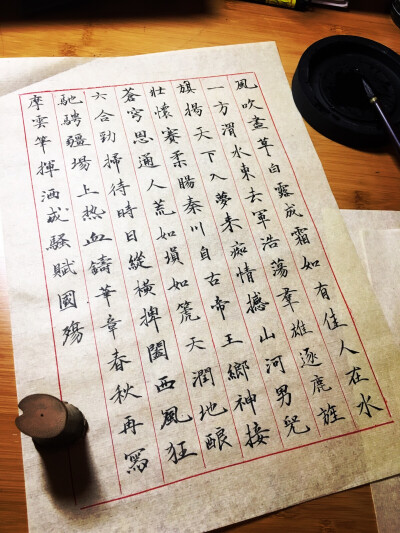 風吹盡草白露成霜如有佳人在水
一方渭水東去軍浩蕩羣雄逐鹿旌
旗揚天下入夢來痴情撼山河男兒
壯懷賽柔腸秦川自古帝王鄉神接
蒼穹思通人荒如塤如箎天潤地釀
六合勁掃待時日縱橫捭闔西風狂
馳騁疆場上熱血鑄華章春秋再寫
摩雲筆揮洒成騷賦國殤